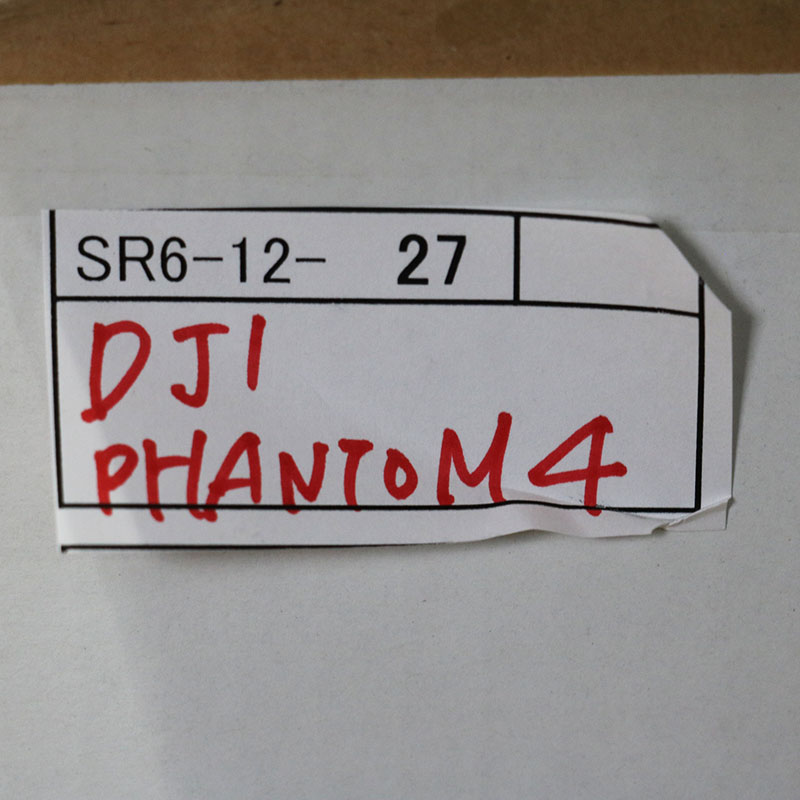 SR6-12- 27
DJI
PHANTOM 4